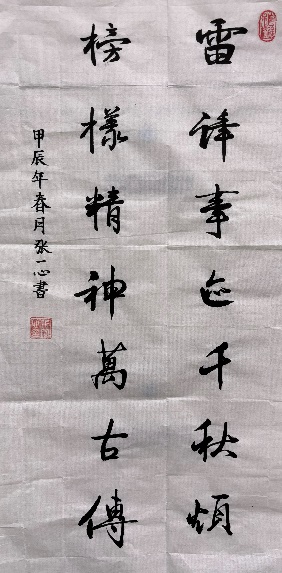 雷锋事迹千秋頌
榜樣精神萬古傳
甲辰年春月张一心書